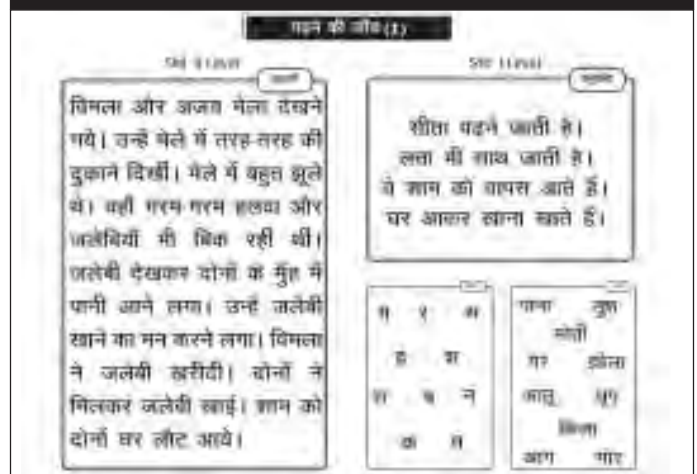 पढ़ने की जाँच (1)
Std II Level
विमला और अजय मेला देखने
गये। उन्हें मेले में तरह-तरह की
दुकाने दिखीं। मेले में बहुत झूले
थे। वहाँ गरम-गरम हलवा और
जलेबियाँ भी बिक रही थीं।
जलेबी देखकर दोनों के मुँह में
पानी आने लगा। उन्हें जलेबी
खाने का मन करने लगा। विमला
ने जलेबी खरीदी। दोनों ने
मिलकर जलेबी खाई। शाम को
दोनों घर लौट आये।
Std I Level
शीता पढ़ने जाती है।
लता भी साथ जाती है।
वे शाम को वापस आते हैं।
घर आकर खाना खाते हैं।
र
ह
न
क
मोती
झोला
आलू
किला
आग मोर